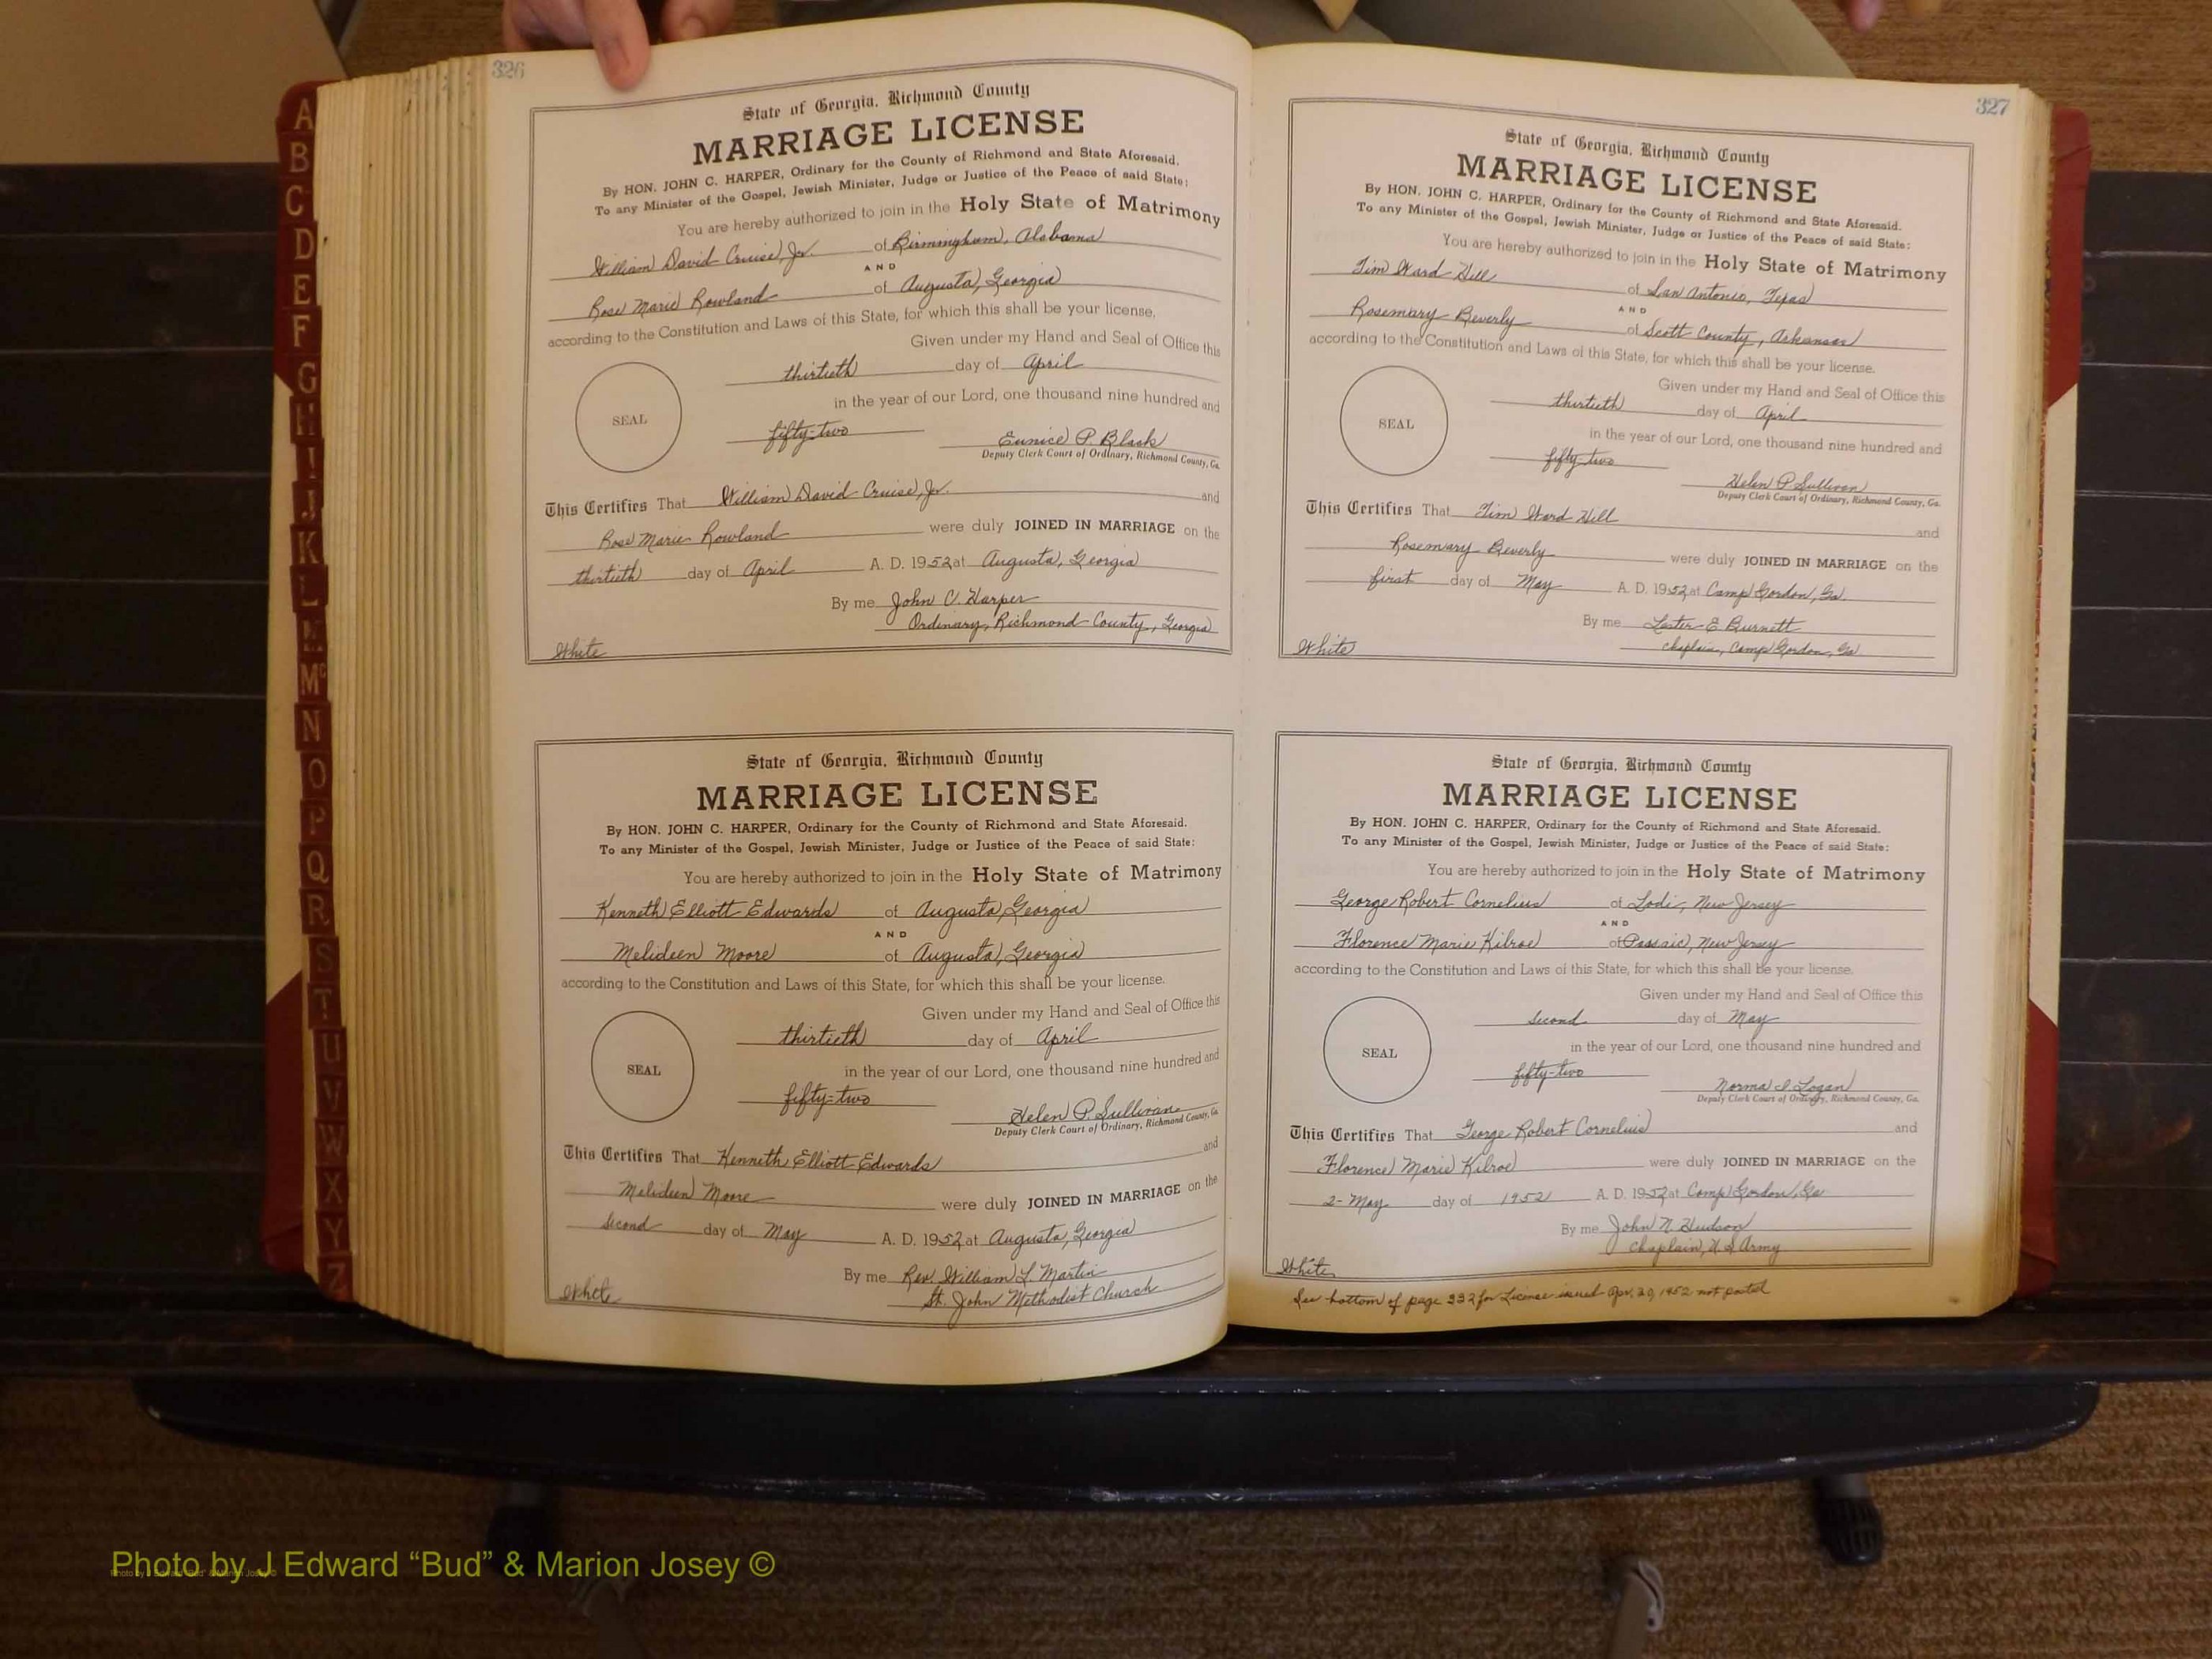 326
State of Georgia, Richmond County
MARRIAGE LICENSE
By HON. JOHN C. HARPER, Ordinary for the County of Richmond and State Aforesaid.
To any Minister of the Gospel, Jewish Minister, Judge or Justice of the Peace of said State:
You are hereby authorized to join in the Holy State of Matrimony
William David Cruise, Jr. of Birmingham, Alabama
AND
Rose Marie Rowland of Augusta, Georgia
according to the Constitution and Laws of this State, for which this shall be your license.
Given under my Hand and Seal of Office this
thirtieth day of April
SEAL
in the year of our Lord, one thousand nine hundred and
fifty-two
Eunice P. Black
Deputy Clerk Court of Ordinary, Richmond County, Ga.
This Certifies That William David Cruise, Jr. and
Rose Marie Rowland were duly JOINED IN MARRIAGE on the
thirtieth day of April A. D. 1952 at Augusta, Georgia
By me John C. Harper
Ordinary, Richmond County, Georgia
White
State of Georgia, Richmond County
MARRIAGE LICENSE
By HON. JOHN C. HARPER, Ordinary for the County of Richmond and State Aforesaid.
To any Minister of the Gospel, Jewish Minister, Judge or Justice of the Peace of said State:
You are hereby authorized to join in the Holy State of Matrimony
Kenneth Elliott Edwards of Augusta, Georgia
AND
Melideen Moore of Augusta, Georgia
according to the Constitution and Laws of this State, for which this shall be your license.
Given under my Hand and Seal of Office this
thirtieth day of April
SEAL
in the year of our Lord, one thousand nine hundred and
fifty-two
Helen P. Sullivan
Deputy Clerk Court of Ordinary, Richmond County, Ga.
This Certifies That Kenneth Elliott Edwards and
Melideen Moore were duly JOINED IN MARRIAGE on the
second day of May A. D. 1952 at Augusta, Georgia
By me Rev. William L. Martin
St. John Methodist Church
White
327
State of Georgia, Richmond County
MARRIAGE LICENSE
By HON. JOHN C. HARPER, Ordinary for the County of Richmond and State Aforesaid.
To any Minister of the Gospel, Jewish Minister, Judge or Justice of the Peace of said State:
You are hereby authorized to join in the Holy State of Matrimony
Tim Ward Hill of San Antonio, Texas
AND
Rosemary Beverly of Scott County, Arkansas
according to the Constitution and Laws of this State, for which this shall be your license.
Given under my Hand and Seal of Office this
thirtieth day of April
SEAL
in the year of our Lord, one thousand nine hundred and
fifty-two
Helen P Sullivan
Deputy Clerk Court of Ordinary, Richmond County, Ga.
This Certifies That Tim Ward Hill and
Rosemary Beverly were duly JOINED IN MARRIAGE on the
first day of May A. D. 1952 at Camp Gordon, Ga.
By me Lester E Burnett
Chaplain, Camp Gordon, Ga.
White
State of Georgia, Richmond County
MARRIAGE LICENSE
By HON. JOHN C. HARPER, Ordinary for the County of Richmond and State Aforesaid.
To any Minister of the Gospel, Jewish Minister, Judge or Justice of the Peace of said State:
You are hereby authorized to join in the Holy State of Matrimony
George Robert Cornelius of Lodi, New Jersey
AND
Florence Marie Kilroe of Passaic, New Jersey
according to the Constitution and Laws of this State, for which this shall be your license.
Given under my Hand and Seal of Office this
second day of May
SEAL
in the year of our Lord, one thousand nine hundred and
fifty-two
Norma I. Logan
Deputy Clerk Court of Ordinary, Richmond County, Ga.
This Certifies That George Robert Cornelius and
Florence Marie Kilroe were duly JOINED IN MARRIAGE on the
2- May day of 1952 A. D. 1952 at Camp Gordon, Ga
By me John N. Hudson
Chaplain, U S Army
White
See bottom of page 332 for License issued Apr. 30, 1952 not posted
A
B
C
D
E
F
G
H
I
J
K
L
M
Mc
N
O
P
Q
R
S
T
U
V
W
X
Y
Z
Photo by J Edward “Bud” & Marion Josey ©
Photo by J Edward “Bud” & Marion Josey ©